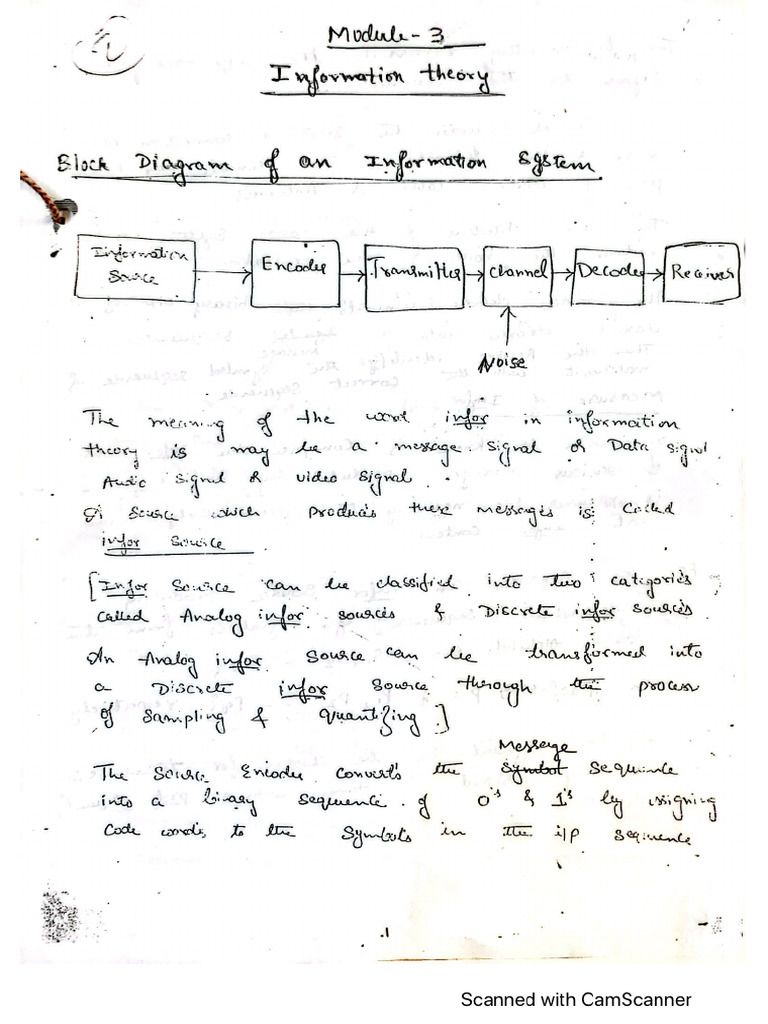 Module - 3
Information theory
Block Diagram of an Information System
Information Source
Encoder
Transmitter
Channel
Decoder
Receiver
Noise
The meaning of the word infor in information
theory is may be a message signal or Data signal
Audio signal & video signal.
A Source which produces these messages is called
infor source
[Infor Source can be classified into two categories
called Analog infor sources & Discrete infor sources
An Analog infor source can be transformed into
a Discrete infor source through the process
of sampling & quantizing]
Message
The Source Encoder converts the symbol sequence
into a binary sequence of 0's & 1's by assigning
code words to the symbols in the i/p sequence
.1
Scanned with CamScanner